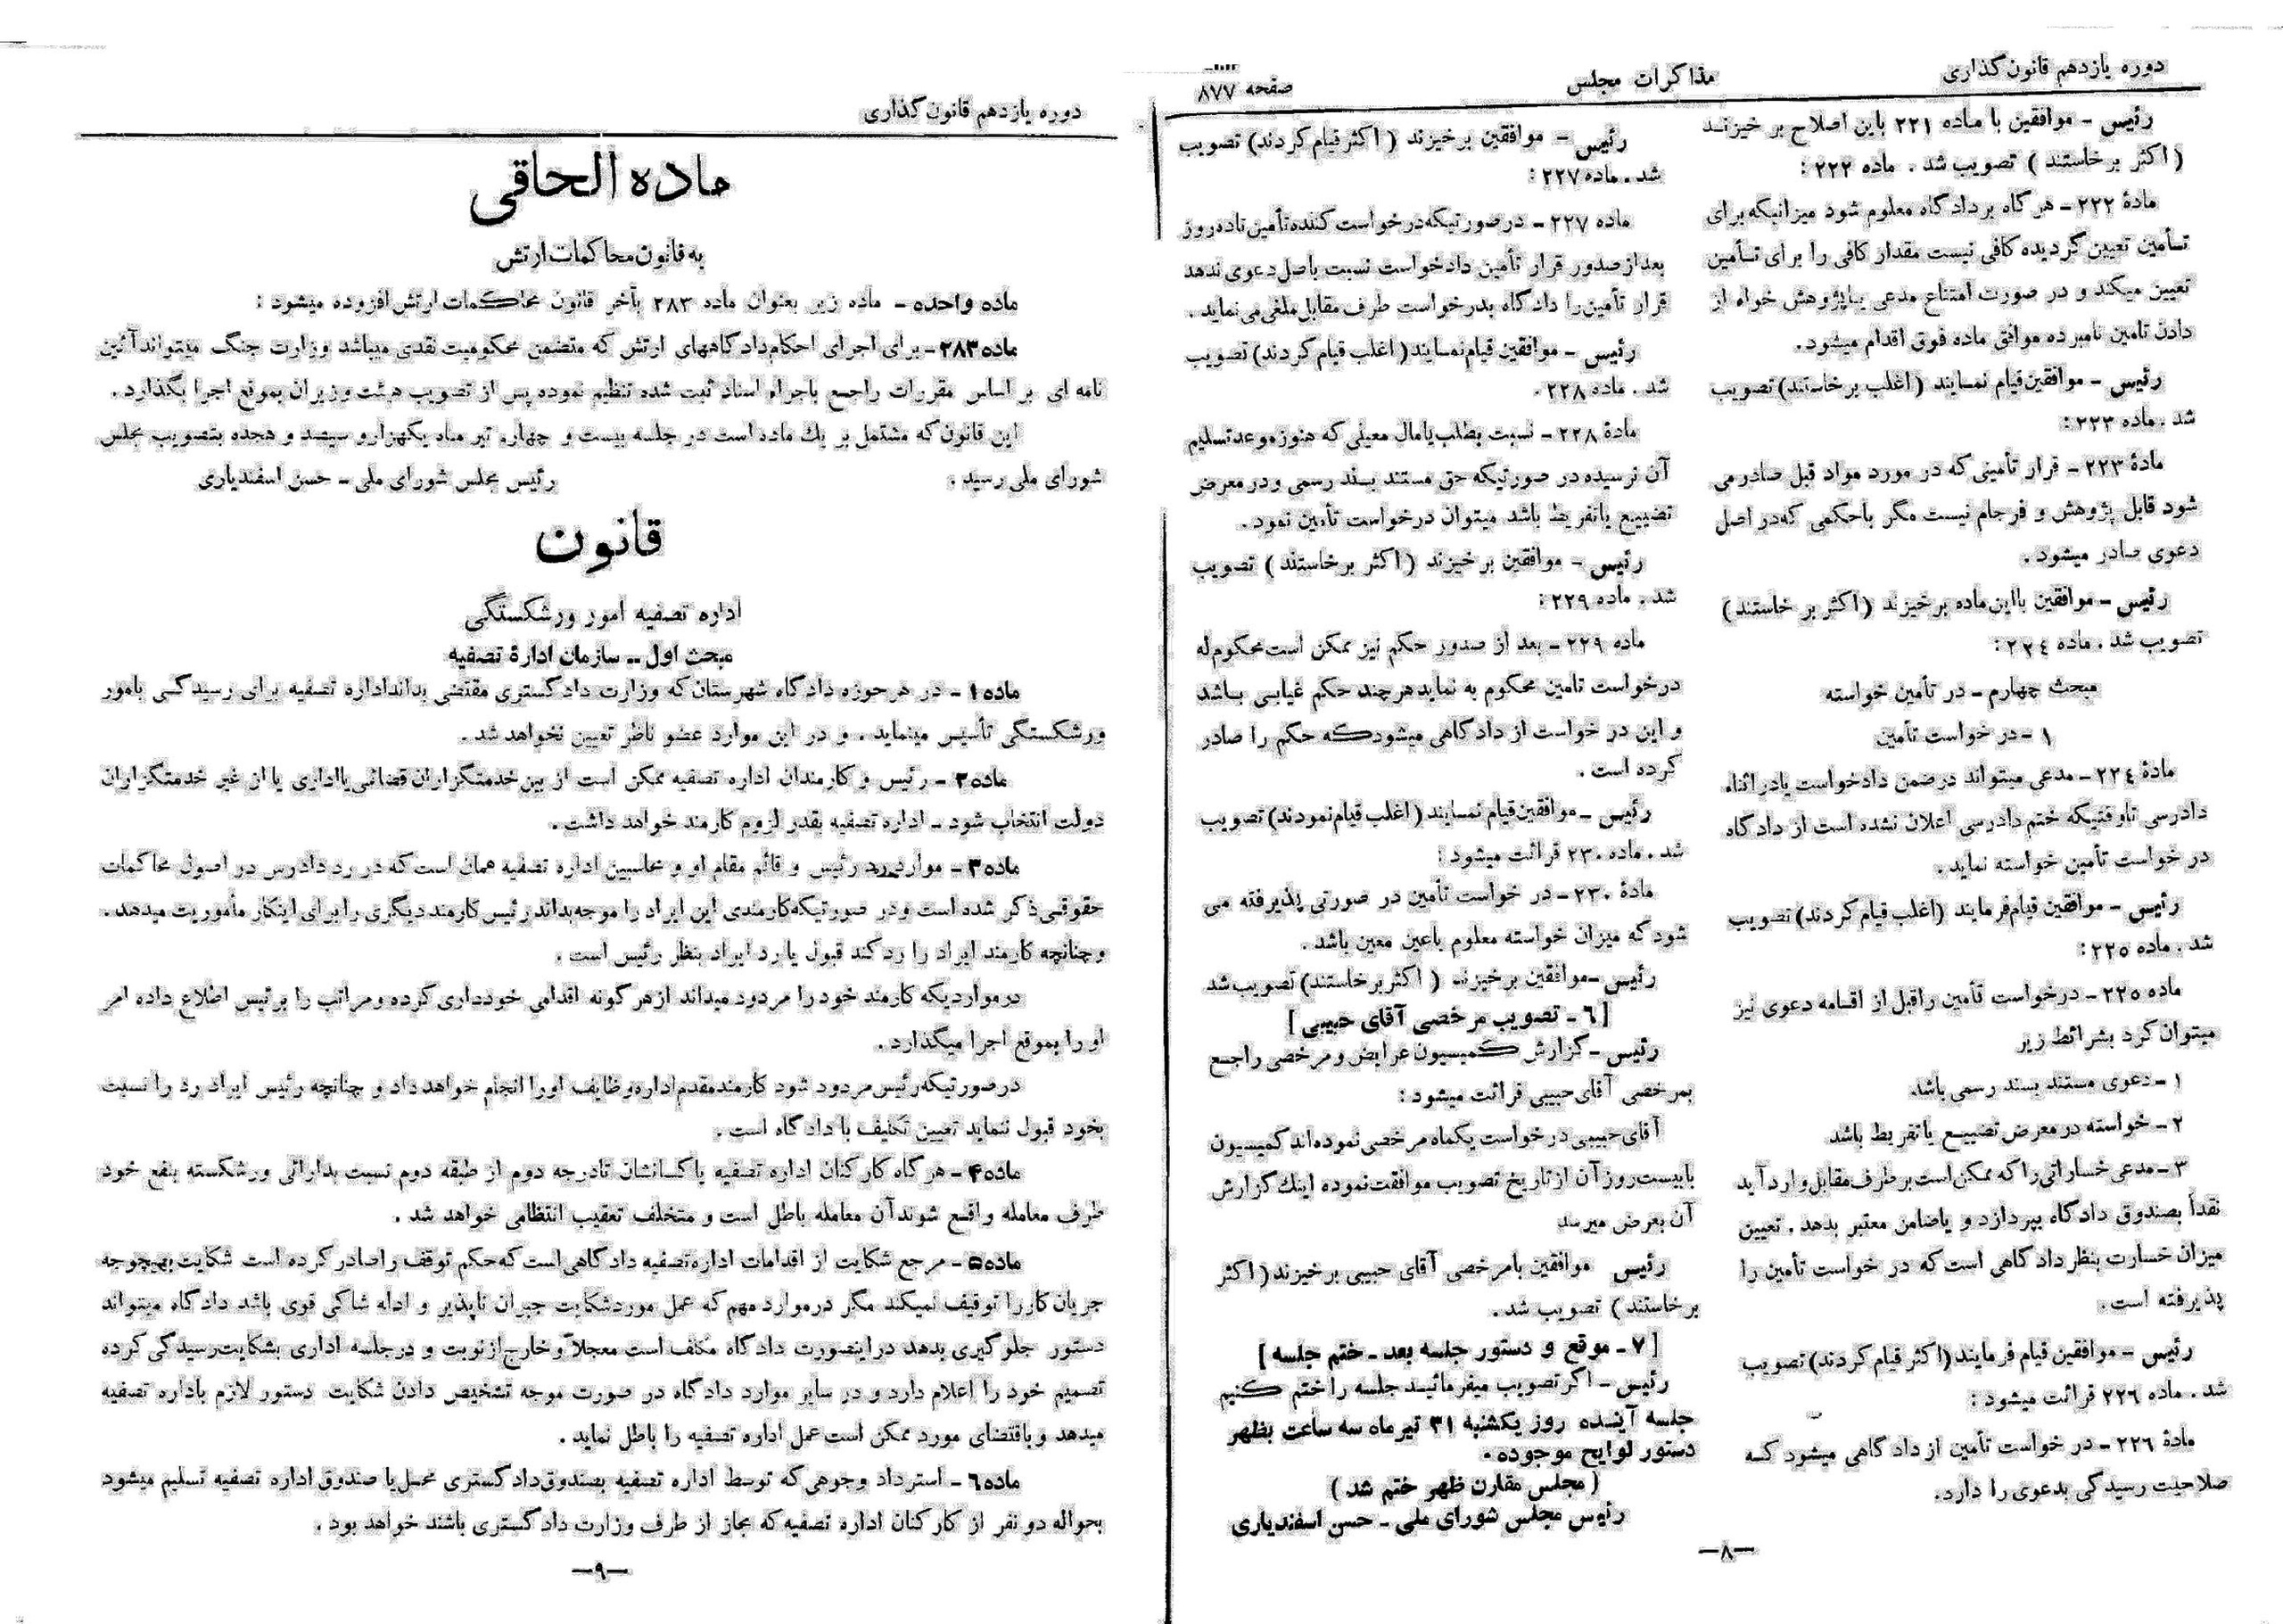 دوره یازدهم قانون‌گذاری
مذاکرات مجلس
صفحه ۸۷۷
رئیس - موافقین با ماده ۲۲۱ باین اصلاح بر خیزند
( اکثر بر خاستند ) تصویب شد . ماده ۲۲۲ :
مادهٔ ۲۲۲ - هر گاه بر دادگاه معلوم شود میزانیکه برای
تأمین تعیین گردیده کافی نیست مقدار کافی را برای تأمین
تعیین میکند و در صورت امتناع مدعی یا پژوهش خواه از
دادن تامین نامبرده موافق ماده فوق اقدام میشود.
رئیس - موافقین قیام نمایند (اغلب برخاستند) تصویب
شد . ماده ۲۲۳:
مادهٔ ۲۲۳ - قرار تأمینی که در مورد مواد قبل صادر می
شود قابل پژوهش و فرجام نیست مگر باحکمی که در اصل
دعوی صادر میشود .
رئیس - موافقین بااین ماده بر خیزند (اکثر بر خاستند)
تصویب شد . ماده ۲۲٤ :
مبحث چهارم - در تأمین خواسته
۱ - در خواست تأمین
مادهٔ ۲۲٤ - مدعی میتواند درضمن دادخواست یادر اثناء
دادرسی تاوقتیکه ختم دادرسی اعلان نشده است از دادگاه
در خواست تأمین خواسته نماید.
رئیس - موافقین قیام فرمایند (اغلب قیام کردند) تصویب
شد . ماده ۲۲٥ :
ماده ۲۲٥ - درخواست تأمین راقبل از اقامه دعوی نیز
میتوان کرد بشرائط زیر
۱ - دعوی مستند بسند رسمی باشد.
۲ - خواسته در معرض تضییع یا تفریط باشد
۳ - مدعی خساراتی را که ممکن است بر طرف مقابل وارد آید
نقداً بصندوق دادگاه بپردازد و یاضامن معتبر بدهد . تعیین
میزان خسارت بنظر دادگاهی است که در خواست تأمین را
پذیرفته است.
رئیس - موافقین قیام فرمایند (اکثر قیام کردند) تصویب
شد . ماده ۲۲٦ قرائت میشود :
مادهٔ ۲۲٦ - در خواست تأمین از دادگاهی میشود که
صلاحیت رسیدگی بدعوی را دارد.
رئیس - موافقین بر خیزند ( اکثر قیام کردند) تصویب
شد . ماده ۲۲۷ :
ماده ۲۲۷ - در صورتیکه درخواست کننده تأمین تاده روز
بعد از صدور قرار تأمین دادخواست نسبت باصل دعوی ندهد
قرار تأمین را دادگاه بدرخواست طرف مقابل ملغی می نماید .
رئیس - موافقین قیام نمایند ( اغلب قیام کردند) تصویب
شد . ماده ۲۲۸ .
مادهٔ ۲۲۸ - نسبت بطلب یامال معینی که هنوز موعد تسلیم
آن نرسیده در صورتیکه حق مستند بسند رسمی و در معرض
تضییع یاتفریط باشد میتوان درخواست تأمین نمود .
رئیس - موافقین بر خیزند ( اکثر بر خاستند ) تصویب
شد . ماده ۲۲۹ :
ماده ۲۲۹ - بعد از صدور حکم نیز ممکن است محکوم‌له
درخواست تامین محکوم به نماید هر چند حکم غیابی باشد
و این در خواست از دادگاهی میشود که حکم را صادر
کرده است .
رئیس - موافقین قیام نمایند ( اغلب قیام نمودند) تصویب
شد . ماده ۲۳۰ قرائت میشود :
مادهٔ ۲۳۰ - در خواست تأمین در صورتی پذیرفته می
شود که میزان خواسته معلوم یاعین معین باشد .
رئیس - موافقین بر خیزند ( اکثر بر خاستند) تصویب شد
[ ٦ - تصویب مرخصی آقای حبیبی ]
رئیس - گزارش کمیسیون عرایض و مرخصی راجع
بمرخصی آقای حبیبی قرائت میشود :
آقای حبیبی درخواست یکماه مرخصی نموده‌اند کمیسیون
بابیست روز آن از تاریخ تصویب موافقت نموده اینك گزارش
آن بعرض میرسد
رئیس موافقین بامرخصی آقای حبیبی بر خیزند ( اکثر
بر خاستند ) تصویب شد .
[ ۷ - موقع و دستور جلسه بعد - ختم جلسه ]
رئیس - اگر تصویب میفرمائید جلسه را ختم کنیم
جلسه آینده روز یکشنبه ۳۱ تیر ماه سه ساعت بظهر
دستور لوایح موجوده .
( مجلس مقارن ظهر ختم شد )
رئیس مجلس شورای ملی - حسن اسفندیاری
—۸—
دوره یازدهم قانون‌گذاری
ماده الحاقی
به قانون محاکمات ارتش
ماده واحده - ماده زیر بعنوان ماده ۲۸۳ بآخر قانون محاکمات ارتش افزوده میشود :
ماده ۲۸۳ - برای اجرای احکام دادگاههای ارتش که متضمن محکومیت نقدی میباشد وزارت جنگ میتواند آئین
نامه ای بر اساس مقررات راجع باجراء اسناد ثبت شده تنظیم نموده پس از تصویب هیئت وزیران بموقع اجرا بگذارد .
این قانون که مشتمل بر یك ماده است در جلسه بیست و چهارم تیر ماه یکهزار و سیصد و هجده بتصویب مجلس
شورای ملی رسید .
رئیس مجلس شورای ملی - حسن اسفندیاری
قانون
اداره تصفیه امور ورشکستگی
مبحث اول - سازمان ادارهٔ تصفیه
ماده ۱ - در هر حوزه دادگاه شهرستان که وزارت دادگستری مقتضی بداند اداره تصفیه برای رسیدگی بامور
ورشکستگی تأسیس مینماید . و در این موارد عضو ناظر تعیین نخواهد شد .
ماده ۲ - رئیس و کارمندان اداره تصفیه ممکن است از بین خدمتگزاران قضائی یااداری یا از غیر خدمتگزاران
دولت انتخاب شود - اداره تصفیه بقدر لزوم کارمند خواهد داشت .
ماده ۳ - موارد رد رئیس و قائم مقام او و محاسبین اداره تصفیه همان است که در رد دادرس در اصول محاکمات
حقوقی ذکر شده است و در صورتیکه کارمندی این ایراد را موجه بداند رئیس کارمند دیگری را برای اینکار مأموریت میدهد .
و چنانچه کارمند ایراد را رد کند قبول یا رد ایراد بنظر رئیس است .
در مواردیکه کارمند خود را مردود میداند از هر گونه اقدامی خودداری کرده و مراتب را برئیس اطلاع داده امر
او را بموقع اجرا میگذارد .
در صورتیکه رئیس مردود شود کارمند مقدم اداره وظایف اورا انجام خواهد داد و چنانچه رئیس ایراد رد را نسبت
بخود قبول ننماید تعیین تکلیف با دادگاه است .
ماده ۴ - هر گاه کارکنان اداره تصفیه یا کسانشان تادرجه دوم از طبقه دوم نسبت بدارائی ورشکسته بنفع خود
طرف معامله واقع شوند آن معامله باطل است و متخلف تعقیب انتظامی خواهد شد .
ماده ۵ - مرجع شکایت از اقدامات اداره تصفیه دادگاهی است که حکم توقف را صادر کرده است شکایت بهیچوجه
جریان کار را توقیف نمیکند مگر در موارد مهم که عمل مورد شکایت جبران ناپذیر و ادله شاکی قوی باشد دادگاه میتواند
دستور جلوگیری بدهد در اینصورت دادگاه مکلف است معجلاً و خارج از نوبت و در جلسه اداری بشکایت رسیدگی کرده
تصمیم خود را اعلام دارد و در سایر موارد دادگاه در صورت موجه تشخیص دادن شکایت دستور لازم باداره تصفیه
میدهد و باقتضای مورد ممکن است عمل اداره تصفیه را باطل نماید .
ماده ٦ - استرداد وجوهی که توسط اداره تصفیه بصندوق دادگستری محل یا صندوق اداره تصفیه تسلیم میشود
بحواله دو نفر از کارکنان اداره تصفیه که مجاز از طرف وزارت دادگستری باشند خواهد بود .
—۹—